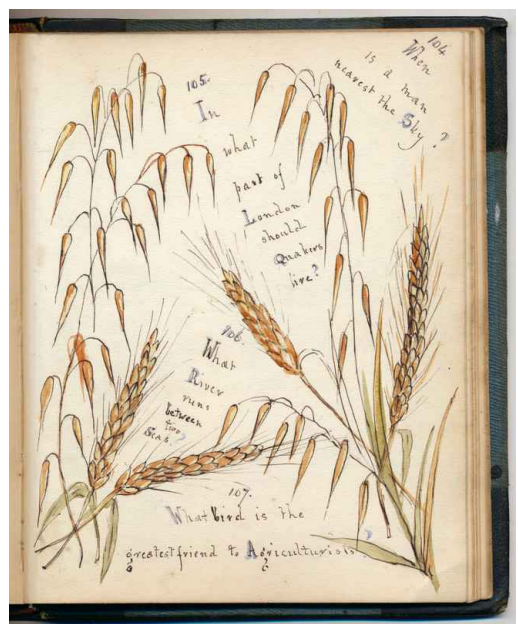 104
When
is a man
nearest the Sky?
105.
In
what
part of
London
should
Quakers
live?
106.
What
River
runs
between
two
Seas?
107.
What bird is the
greatest friend to Agriculturists?